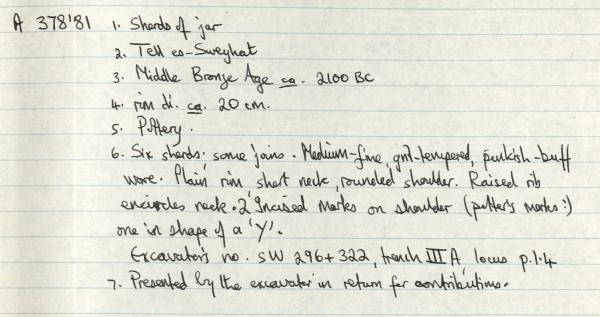 A 378'81 1. Sherds of jar
2. Tell es-Sweyhat
3. Middle Bronze Age ca. 2100 BC
4. rim di. ca. 20 cm.
5. Pottery.
6. Six sherds; some joins. Medium-fine, grit-tempered, pinkish-buff
ware. Plain rim, short neck, rounded shoulder. Raised rib
encircles neck. 2 incised marks on shoulder (potter's marks:)
one in shape of a 'Y'.
Excavator's no. SW 296+322, trench III A, locus p.1.4
7. Presented by the excavator in return for contributions.